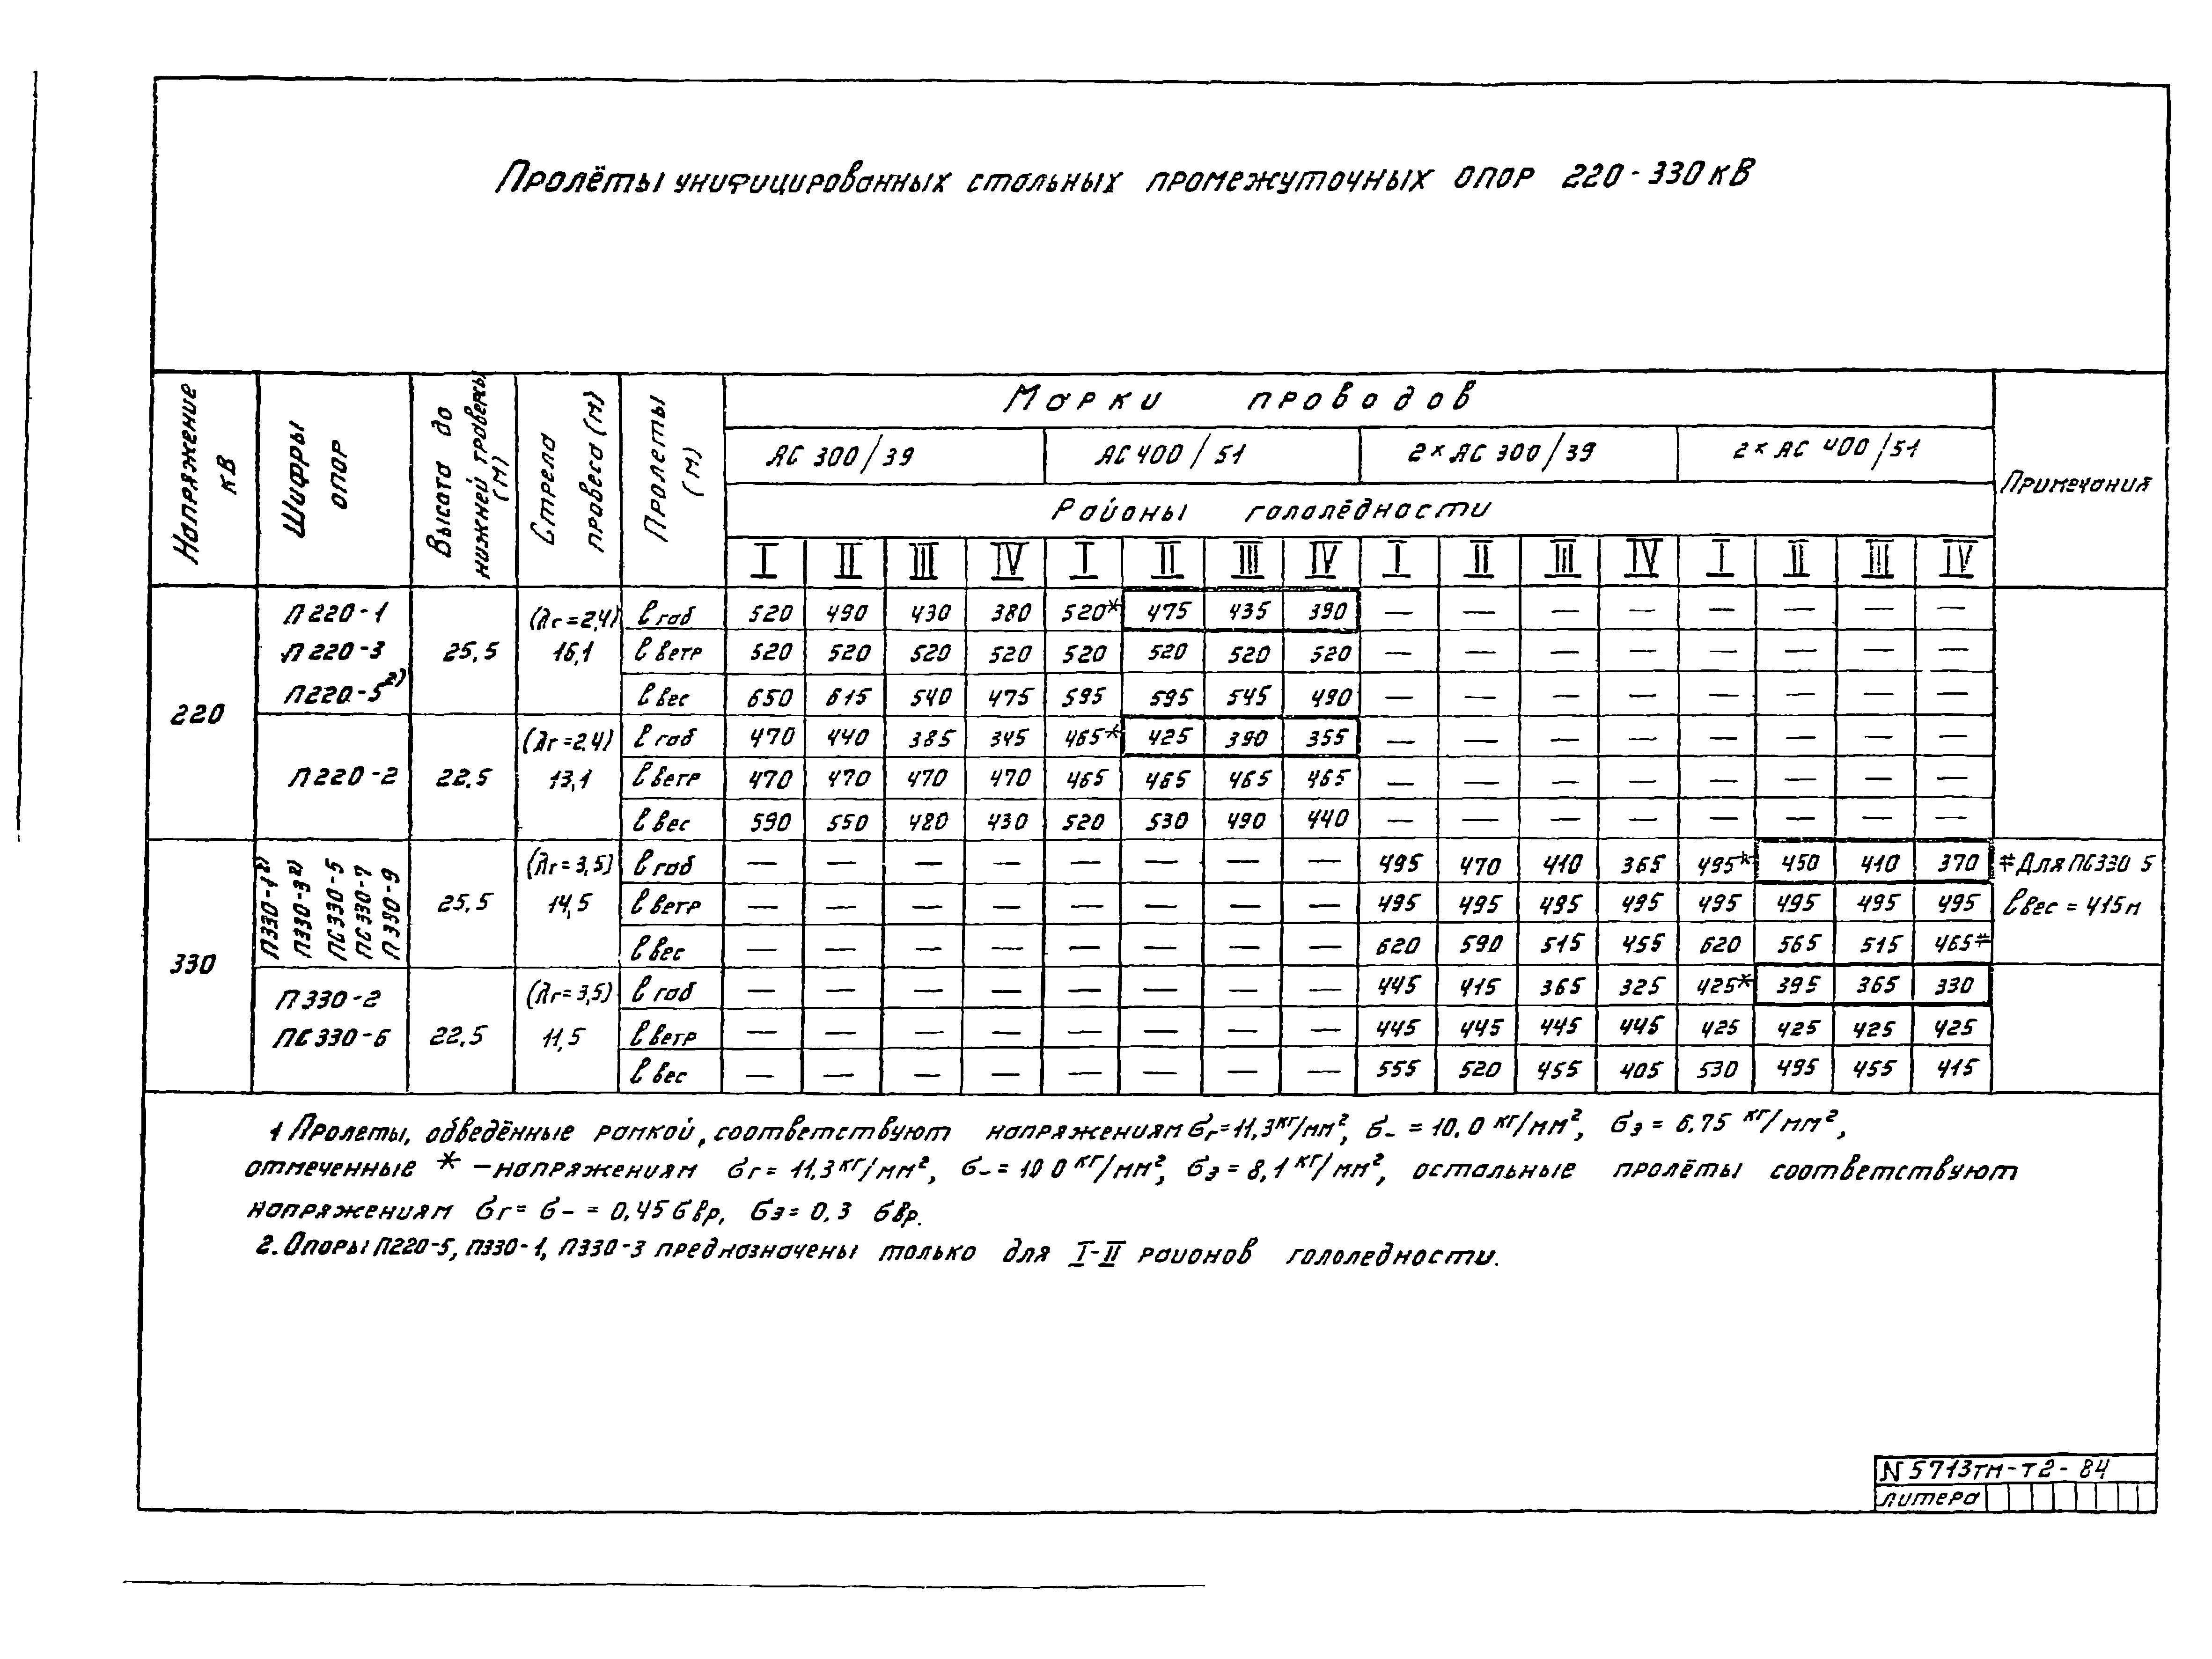 Пролёты унифицированных стальных промежуточных опор 220-330 кВ
Напряжение кВ
Шифры опор
Высота до нижней траверсы (м)
Стрела провеса (м)
Пролеты (м)
Марки проводов
Примечания
АС 300/39 АС 400/51 2×АС 300/39 2×АС 400/51
Районы гололёдности
I II III IV I II III IV I II III IV I II III IV
220
П220-1
П220-3
П220-5²⁾
25,5
(λг=2,4)
16,1
ℓ габ 520 490 430 380 520* 475 435 390 — — — — — — — —
ℓ ветр 520 520 520 520 520 520 520 520 — — — — — — — —
ℓ вес 650 615 540 475 595 595 545 490 — — — — — — — —
П220-2
22,5
(λг=2,4)
13,1
ℓ габ 470 440 385 345 465* 425 390 355 — — — — — — — —
ℓ ветр 470 470 470 470 465 465 465 465 — — — — — — — —
ℓ вес 590 550 480 430 520 530 490 440 — — — — — — — —
330
П330-1²⁾
П330-3²⁾
ПС330-5
ПС330-7
П330-9
25,5
(λг=3,5)
14,5
ℓ габ — — — — — — — — 495 470 410 365 495* 450 410 370
ℓ ветр — — — — — — — — 495 495 495 495 495 495 495 495
ℓ вес — — — — — — — — 620 590 515 455 620 565 515 465#
# Для ПС330 5
ℓ вес = 415 м
П330-2
ПС330-6
22,5
(λг=3,5)
11,5
ℓ габ — — — — — — — — 445 415 365 325 425* 395 365 330
ℓ ветр — — — — — — — — 445 445 445 445 425 425 425 425
ℓ вес — — — — — — — — 555 520 455 405 530 495 455 415
1 Пролеты, обведённые рамкой, соответствуют напряжениям бг=11,3 кг/мм², б- = 10,0 кг/мм², бэ = 6,75 кг/мм²,
отмеченные * – напряжениям бг = 11,3 кг/мм², б- = 10 0 кг/мм², бэ = 8,1 кг/мм², остальные пролёты соответствуют
напряжениям бг = б- = 0,45 бвр, бэ = 0,3 бвр.
2. Опоры П220-5, П330-1, П330-3 предназначены только для I-II районов гололедности.
N 5713тм-т2-84
литера